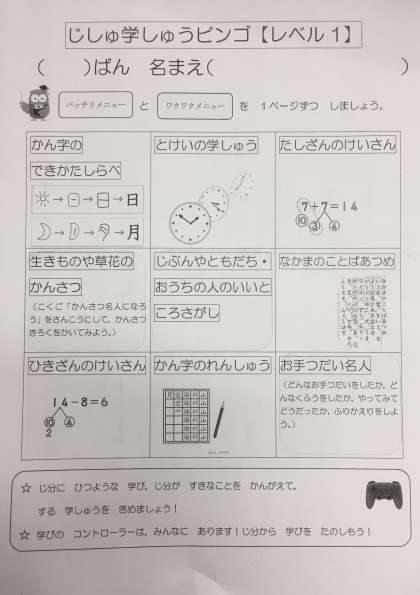 じしゅ学しゅうビンゴ【レベル1】
(　　)ばん　名まえ(　　　　　　　　)
バッチリメニュー と ワクワクメニュー を　1ページずつ　しましょう。
かん字の
できかたしらべ
日
月
とけいの学しゅう
たしざんのけいさん
7+7=14
⑩ ③ ④
生きものや草花の
かんさつ
(こくご「かんさつ名人になろ
う」をさんこうにして、かんさつ
きろくをかいてみよう。)
じぶんやともだち・
おうちの人のいいと
ころさがし
なかまのことばあつめ
ひきざんのけいさん
14-8=6
⑩ ④
2
かん字のれんしゅう
お手つだい名人
(どんなお手つだいをしたか、ど
んなくふうをしたか、やってみて
どうだったか、ふりかえりをしよ
う。)
☆ じ分に　ひつような　学び，じ分が　すきなことを　かんがえて，
する　学しゅうを　きめましょう！
☆ 学びの　コントローラーは，みんなに　あります！じ分から　学びを　たのしもう！